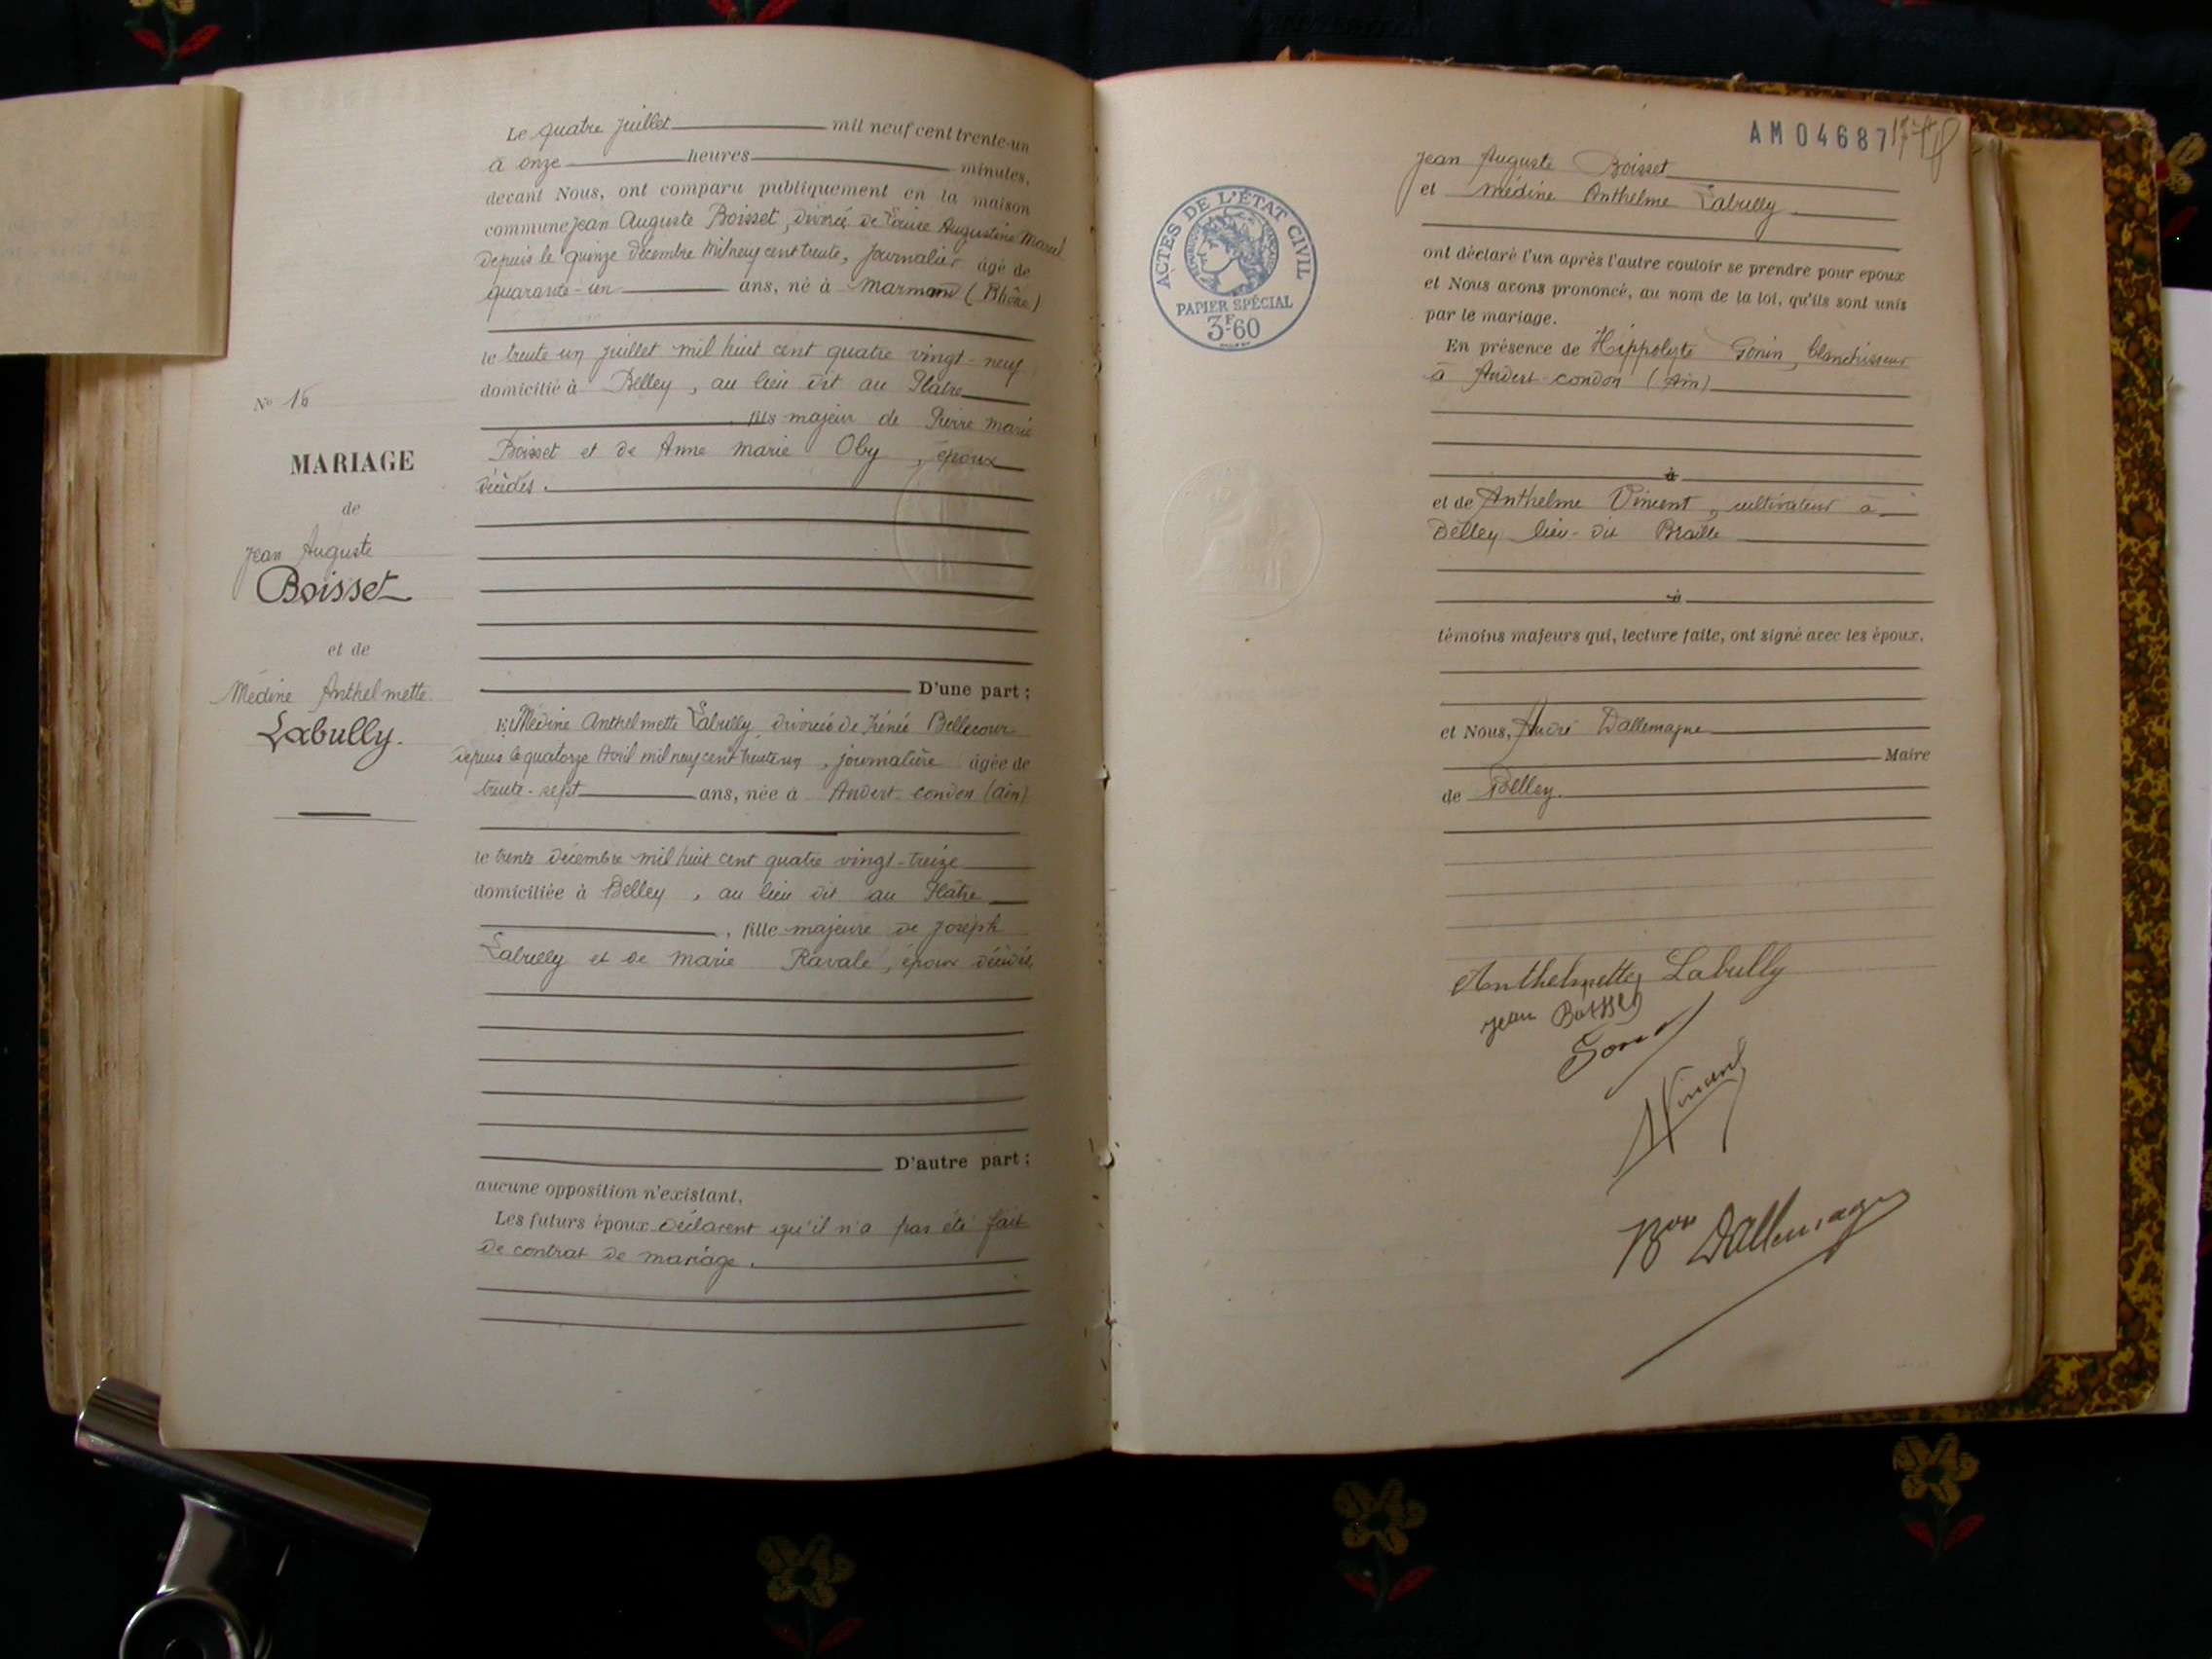 Le quatre juillet mil neuf cent trente-un
à onze heures minutes,
devant Nous, ont comparu publiquement en la maison
commune Jean Auguste Boisset, divorcé de Louise Augustine
depuis le quinze décembre mil neuf cent trente, journalier âgé de
quarante-un ans, né à (Rhône)
le trente un juillet mil huit cent quatre vingt-neuf
domicilié à Belley, au lieu dit au Plâtre
fils majeur de Pierre Marie
Boisset et de Anne Marie Oby, époux
décédés.
D'une part ;
Et Médine Anthelmette Labully divorcée de Irénée Bellecour
depuis le quatorze Avril mil neuf cent trente un, journalière âgée de
trente-sept ans, née à Andert-Condon (Ain)
le trente décembre mil huit cent quatre vingt-treize
domiciliée à Belley, au lieu dit au Plâtre
, fille majeure de Joseph
Labully et de Marie Ravale, époux décédés
D'autre part ;
aucune opposition n'existant,
Les futurs époux déclarent qu'il n'a pas été fait
de contrat de mariage.
No 16
MARIAGE
de
Jean Auguste
Boisset
et de
Médine Anthelmette
Labully.
AM 04687
ACTES DE L'ÉTAT CIVIL
PAPIER SPÉCIAL
3F.60
Jean Auguste Boisset
et Médine Anthelme Labully
ont déclaré l'un après l'autre vouloir se prendre pour époux
et Nous avons prononcé, au nom de la loi, qu'ils sont unis
par le mariage.
En présence de Hippolyte Gonin, blanchisseur
à Andert-Condon (Ain)
à
et de Anthelme Vincent, cultivateur à
Belley lieu-dit Braille
à
témoins majeurs qui, lecture faite, ont signé avec les époux,
et Nous, André Dallemagne
Maire
de Belley.
Anthelmette Labully
Jean Boisset
Gonin
A Vincent
Bon Dallemagne